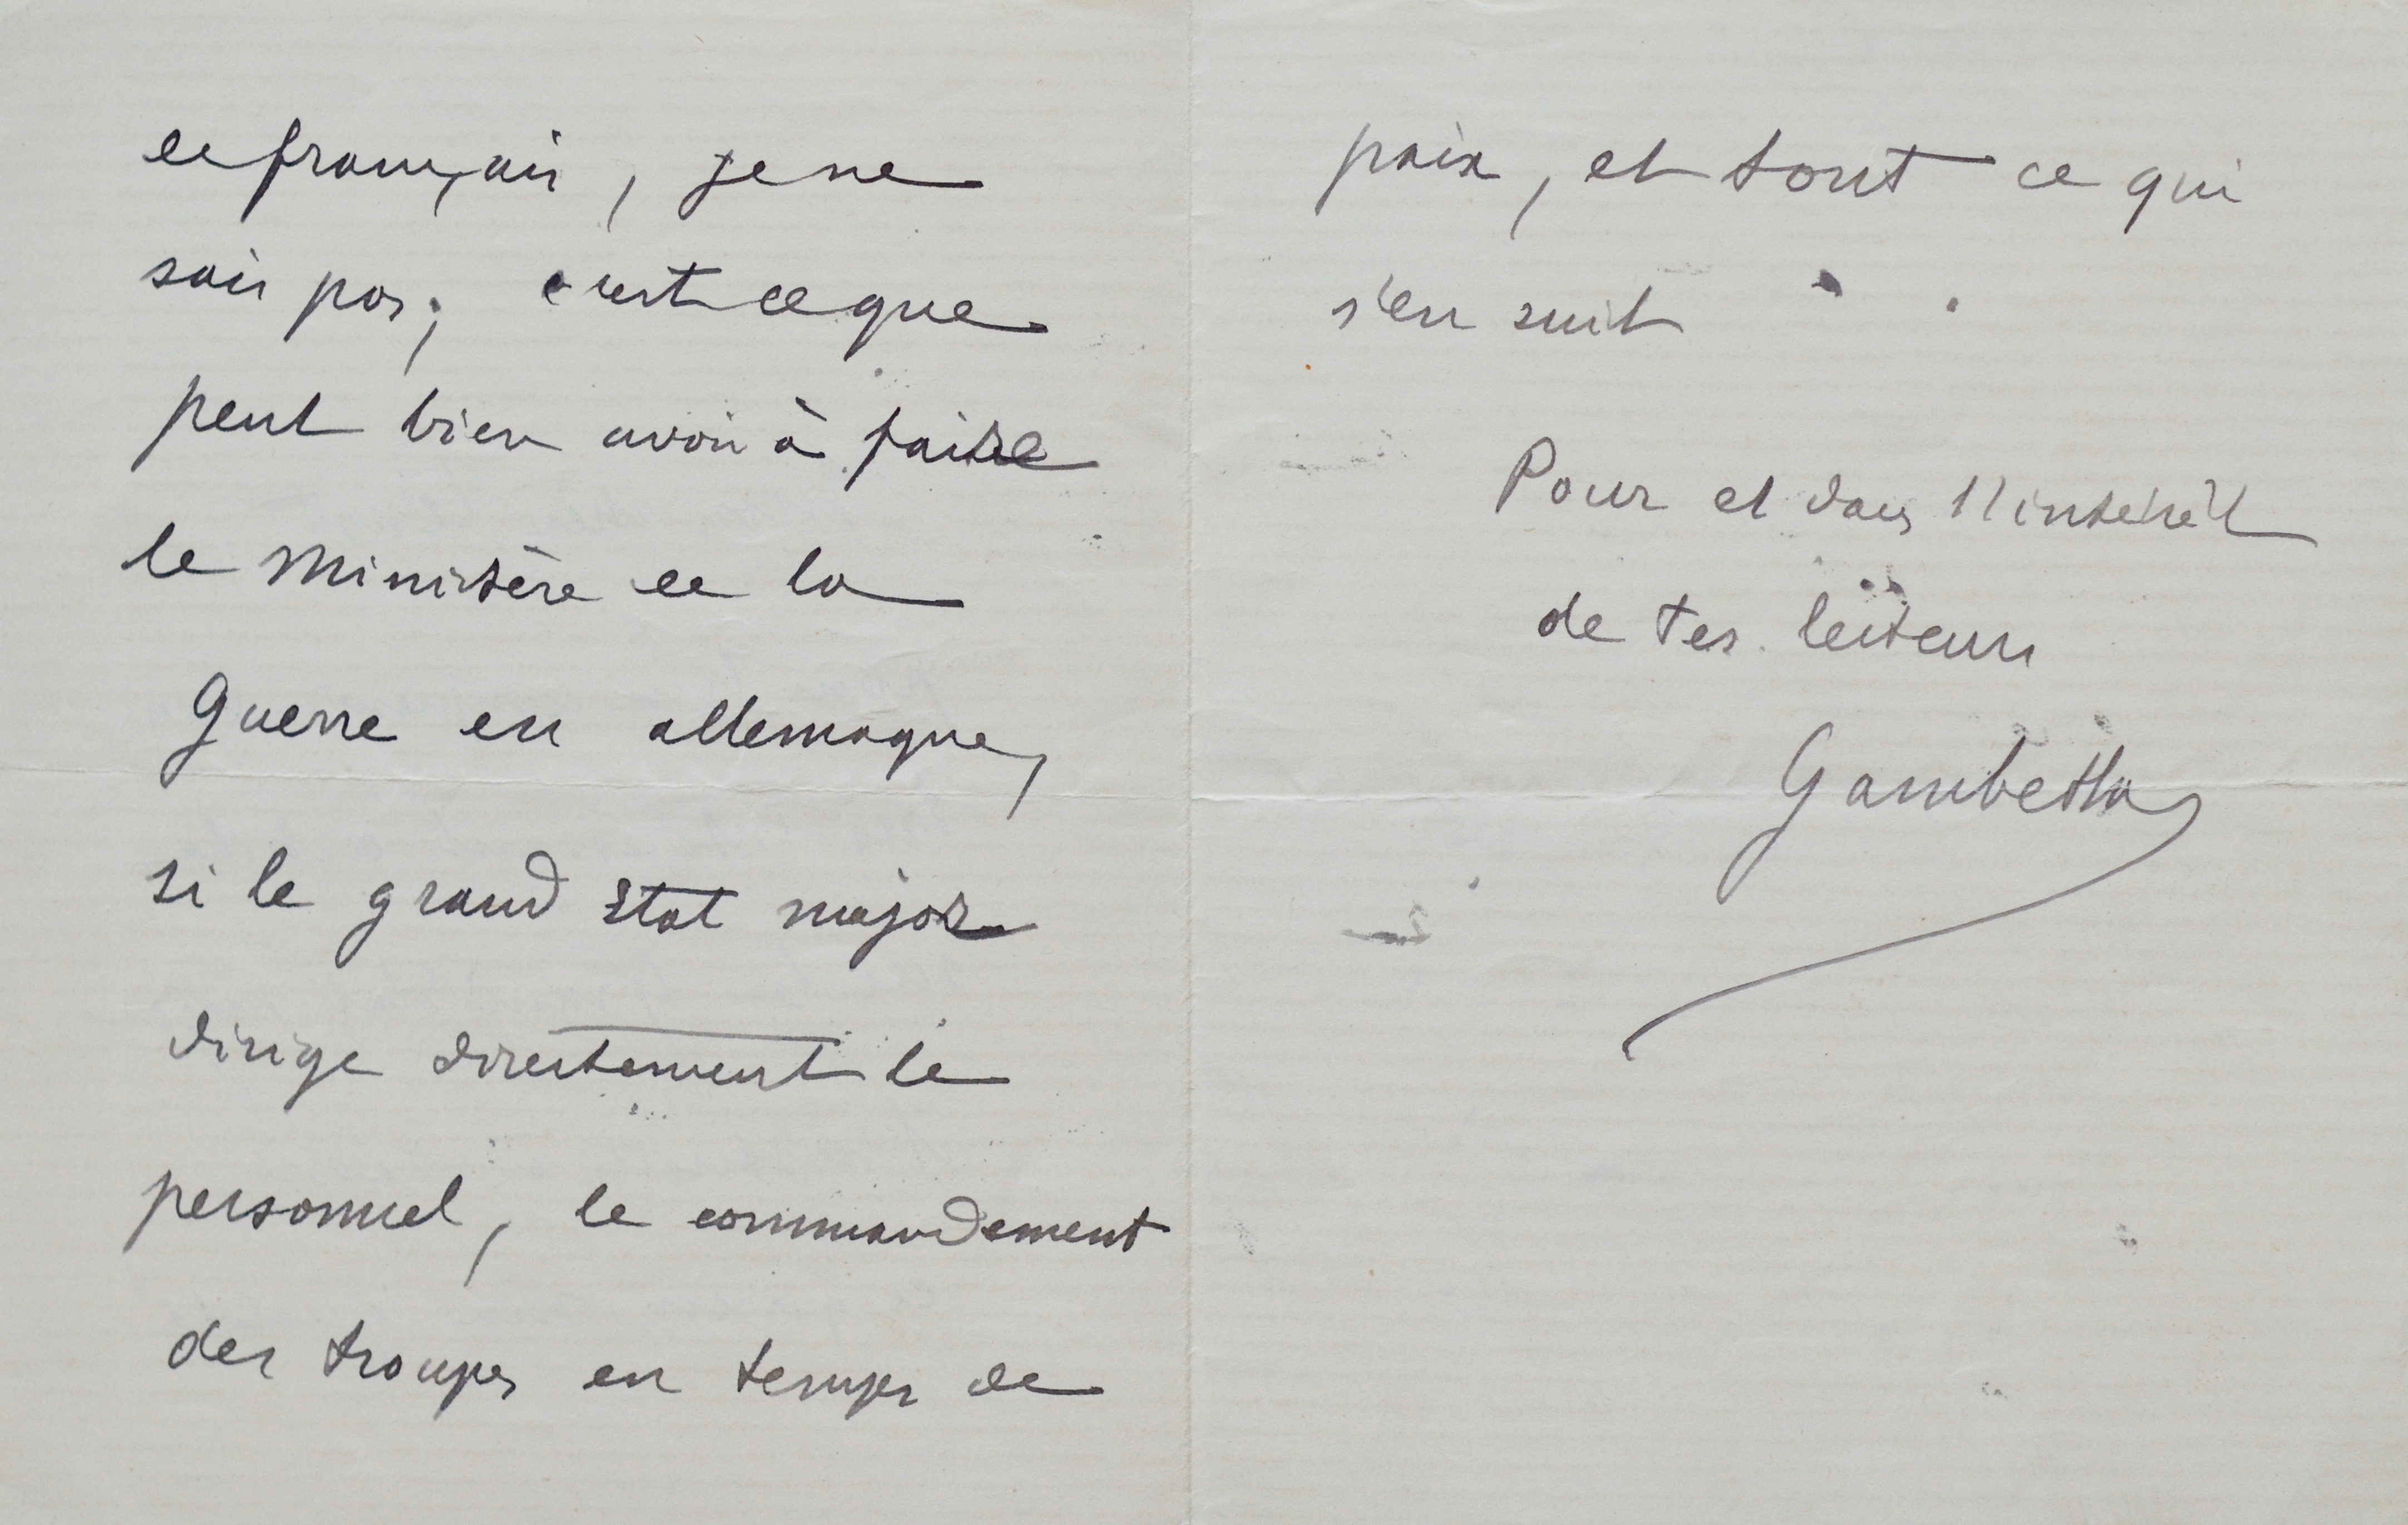 le français, je ne
sais pas; c'est ce que
peut bien avoir à faire
le Ministère de la
Guerre en allemagne,
si le grand Etat major
dirige directement le
personnel, le commandement
des troupes en temps de
paix, et tout ce qui
s'en suit
Pour et dans l'intérêt
de tes lecteurs
Gambetta